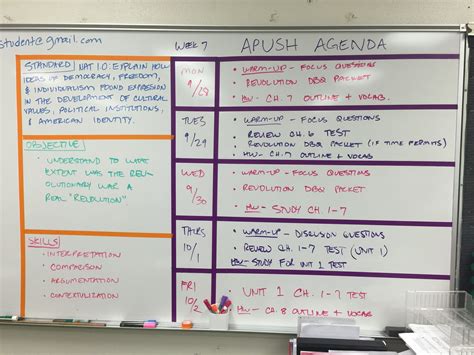 student@gmail.com
WEEK 7
APUSH AGENDA
STANDARD NAT 1.0: EXPLAIN HOW
IDEAS OF DEMOCRACY, FREEDOM,
& INDIVIDUALISM FOUND EXPRESSION
IN THE DEVELOPMENT OF CULTURAL
VALUES, POLITICAL INSTITUTIONS,
& AMERICAN IDENTITY.
OBJECTIVE
• UNDERSTAND TO WHAT
EXTENT WAS THE REV-
OLUTIONARY WAR A
REAL "REVOLUTION"
SKILLS
• INTERPRETATION
• COMPARISON
• ARGUMENTATION
• CONTEXTULIZATION
MON
9/28
• WARM-UP - FOCUS QUESTIONS
• REVOLUTION DBQ PACKET
• HW - CH. 7 OUTLINE + VOCAB.
TUES
9/29
• WARM-UP - FOCUS QUESTIONS
• REVIEW CH. 6 TEST
• REVOLUTION DBQ PACKET (IF TIME PERMITS)
• HW - CH. 7 OUTLINE + VOCAB
WED
9/30
• WARM-UP - FOCUS QUESTIONS
• REVOLUTION DBQ PACKET
• HW - STUDY CH. 1-7
THURS
10/1
• WARM-UP - DISCUSION QUESTIONS
• REVIEW CH. 1-7 TEST (UNIT 1)
HW - STUDY FOR UNIT 1 TEST
FRI
10/2
• UNIT 1 CH. 1-7 TEST
• HW - CH. 8 OUTLINE + VOCAB